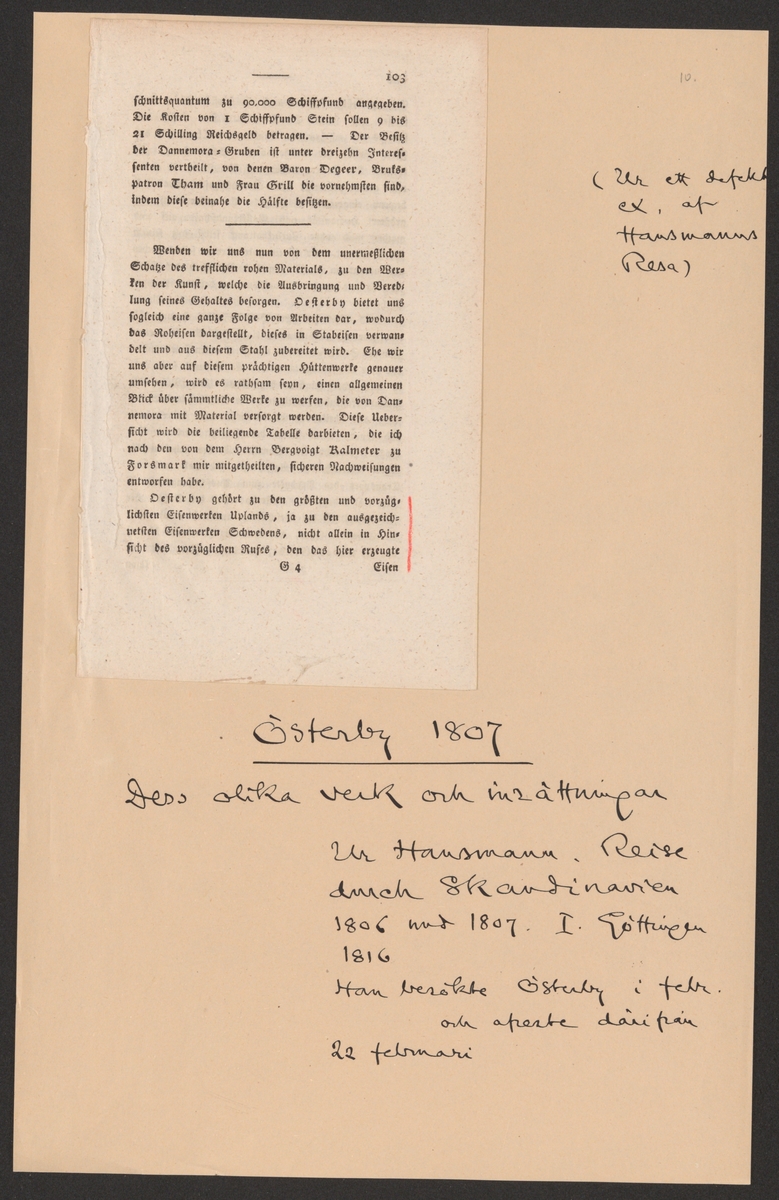 103
schnittsquantum zu 90,000 Schiffpfund angegeben.
Die Kosten von 1 Schiffpfund Stein sollen 9 bis
21 Schilling Reichsgeld betragen. — Der Besitz
der Dannemora-Gruben ist unter dreizehn Interes-
senten vertheilt, von denen Baron Degeer, Bruks-
patron Tham und Frau Grill die vornehmsten sind,
indem diese beinahe die Hälfte besitzen.
Wenden wir uns nun von dem unermeßlichen
Schatze des trefflichen rohen Materials, zu den Wer-
ken der Kunst, welche die Ausbringung und Vered-
lung seines Gehaltes besorgen. Oesterby bietet uns
sogleich eine ganze Folge von Arbeiten dar, wodurch
das Roheisen dargestellt, dieses in Stabeisen verwan-
delt und aus diesem Stahl zubereitet wird. Ehe wir
uns aber auf diesem prächtigen Hüttenwerke genauer
umsehen, wird es rathsam seyn, einen allgemeinen
Blick über sämmtliche Werke zu werfen, die von Dan-
nemora mit Material versorgt werden. Diese Ueber-
sicht wird die beiliegende Tabelle darbieten, die ich
nach den von dem Herrn Bergvoigt Kalmeter zu
Forsmark mir mitgetheilten, sicheren Nachweisungen
entworfen habe.
Oesterby gehört zu den größten und vorzüg-
lichsten Eisenwerken Uplands, ja zu den ausgezeich-
netsten Eisenwerken Schwedens, nicht allein in Hin-
sicht des vorzüglichen Rufes, den das hier erzeugte
G 4 Eisen
10.
(Ur ett defekt
ex. af
Hausmanns
Resa)
Österby 1807
Dess olika verk och inrättningar
Ur Hausmann. Reise
durch Skandinavien
1806 und 1807. I. Göttingen
1816
Han besökte Österby i febr.
och afreste därifrån
22 februari